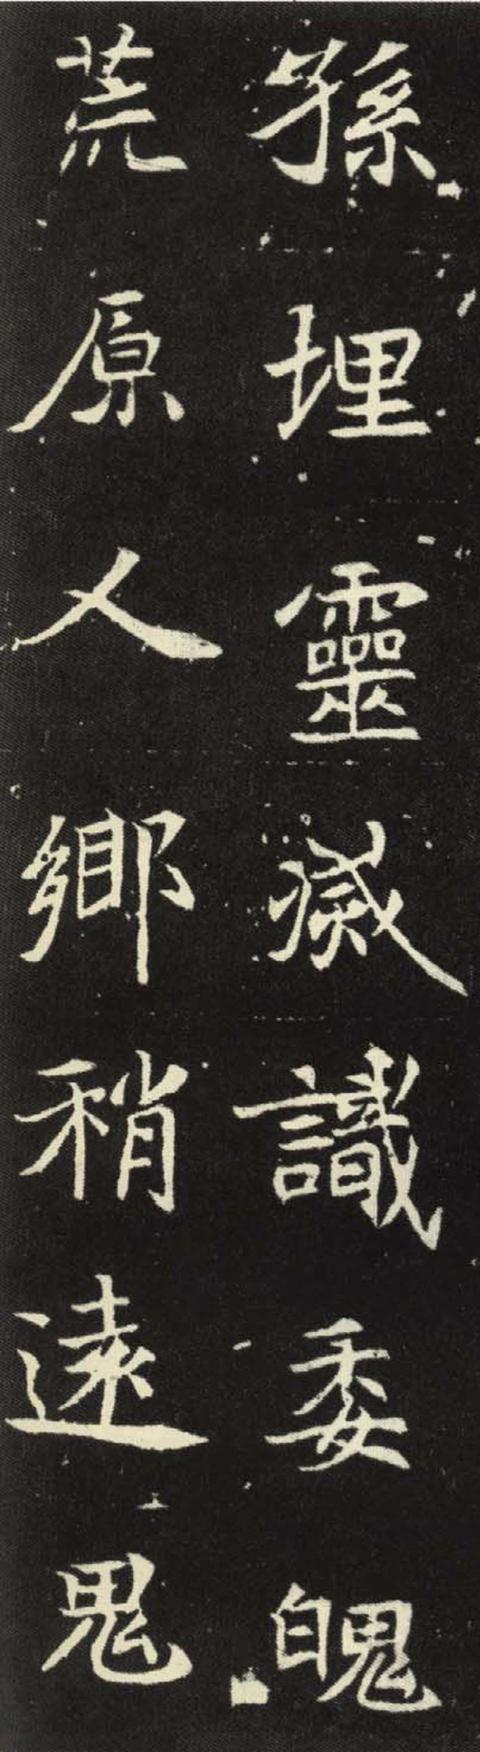 孫埋靈滅識委魄
荒原人鄉稍遠鬼